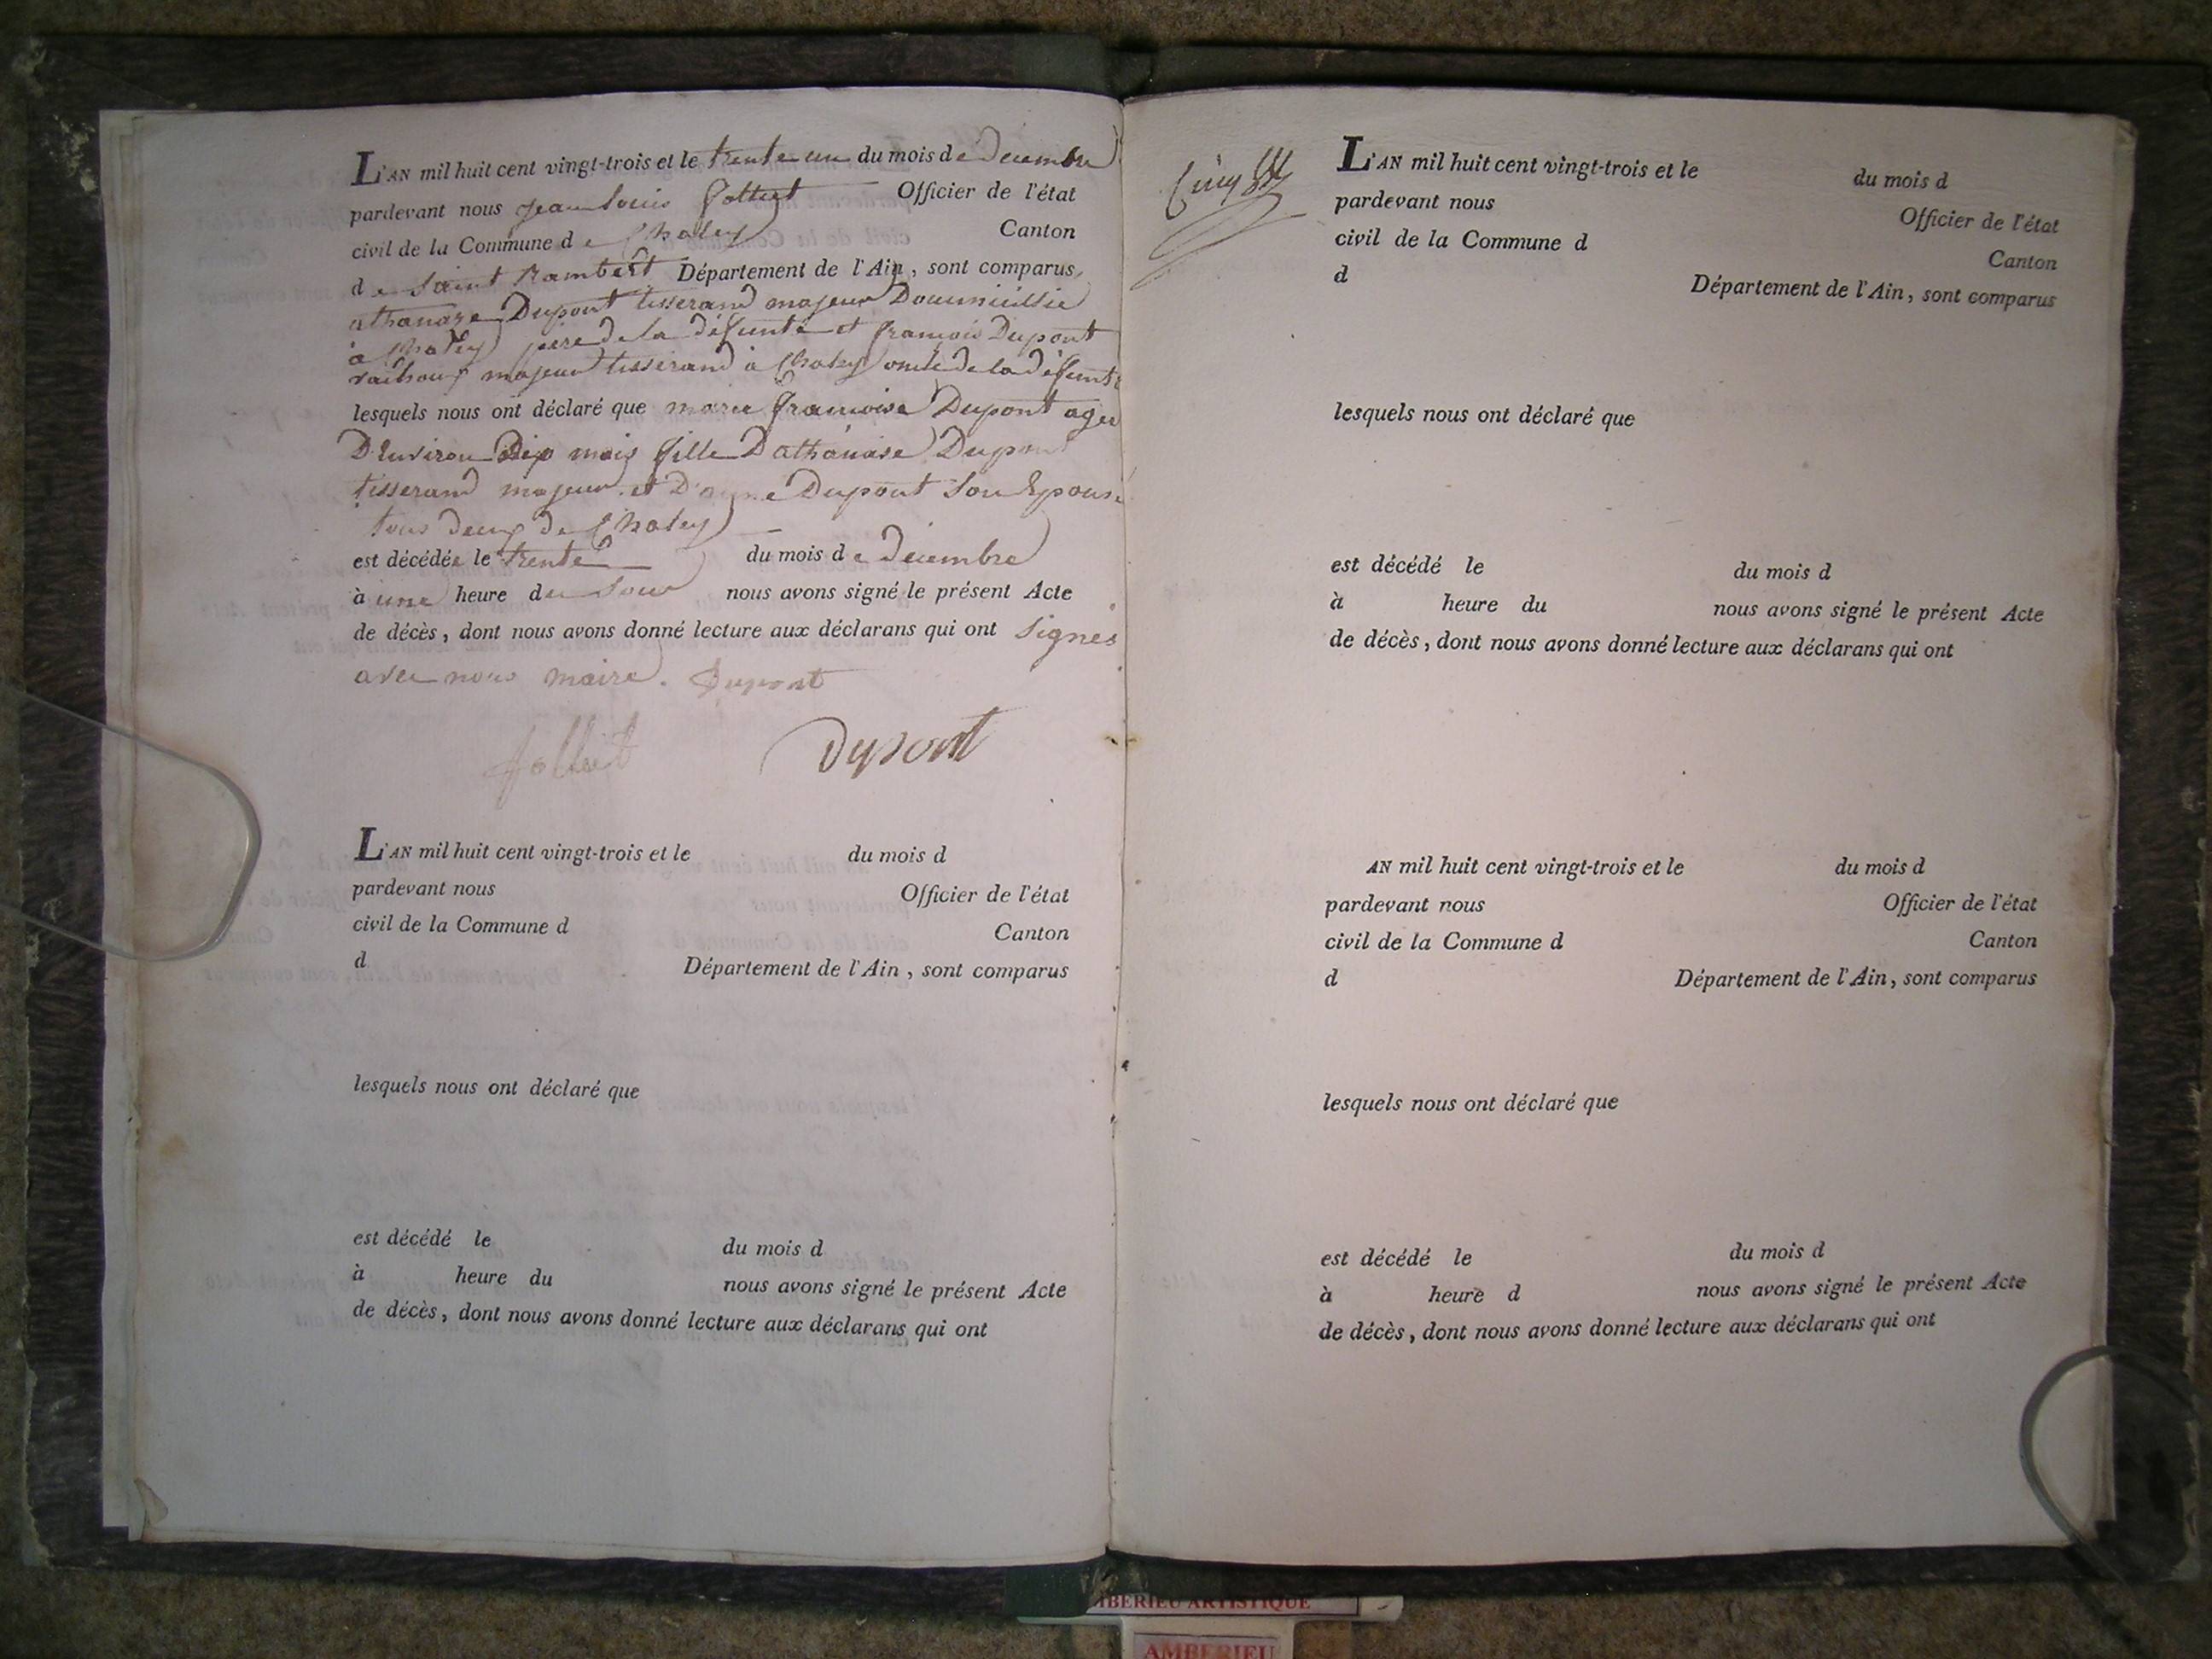 L'AN mil huit cent vingt-trois et le trente un du mois de decembre
pardevant nous jean Louis Officier de l'état
civil de la Commune de Chaley Canton
de Saint Rambert Département de l'Ain, sont comparus,
athanaze Dupont tisserand majeur Doumicillie
à Chaley père de la défunte et françois Dupont
majeur tisserand à Chaley oncle de la défunte
lesquels nous ont déclaré que marie françoise Dupont agée
D'Environ mois fille D'athanaise Dupont
tisserand majeur et D' Dupont Son Epouse
tous deux de Chaley
est décédée le trente du mois de decembre
à une heure du Soir nous avons signé le présent Acte
de décès, dont nous avons donné lecture aux déclarans qui ont Signés
avec nous maire. Dupont
Dupont
L'AN mil huit cent vingt-trois et le du mois d
pardevant nous Officier de l'état
civil de la Commune d Canton
d Département de l'Ain, sont comparus
lesquels nous ont déclaré que
est décédé le du mois d
à heure du nous avons signé le présent Acte
de décès, dont nous avons donné lecture aux déclarans qui ont
L'AN mil huit cent vingt-trois et le du mois d
pardevant nous Officier de l'état
civil de la Commune d Canton
d Département de l'Ain, sont comparus
lesquels nous ont déclaré que
est décédé le du mois d
à heure du nous avons signé le présent Acte
de décès, dont nous avons donné lecture aux déclarans qui ont
AN mil huit cent vingt-trois et le du mois d
pardevant nous Officier de l'état
civil de la Commune d Canton
d Département de l'Ain, sont comparus
lesquels nous ont déclaré que
est décédé le du mois d
à heure d nous avons signé le présent Acte
de décès, dont nous avons donné lecture aux déclarans qui ont
ARTISTIQUE
AMBERIEU